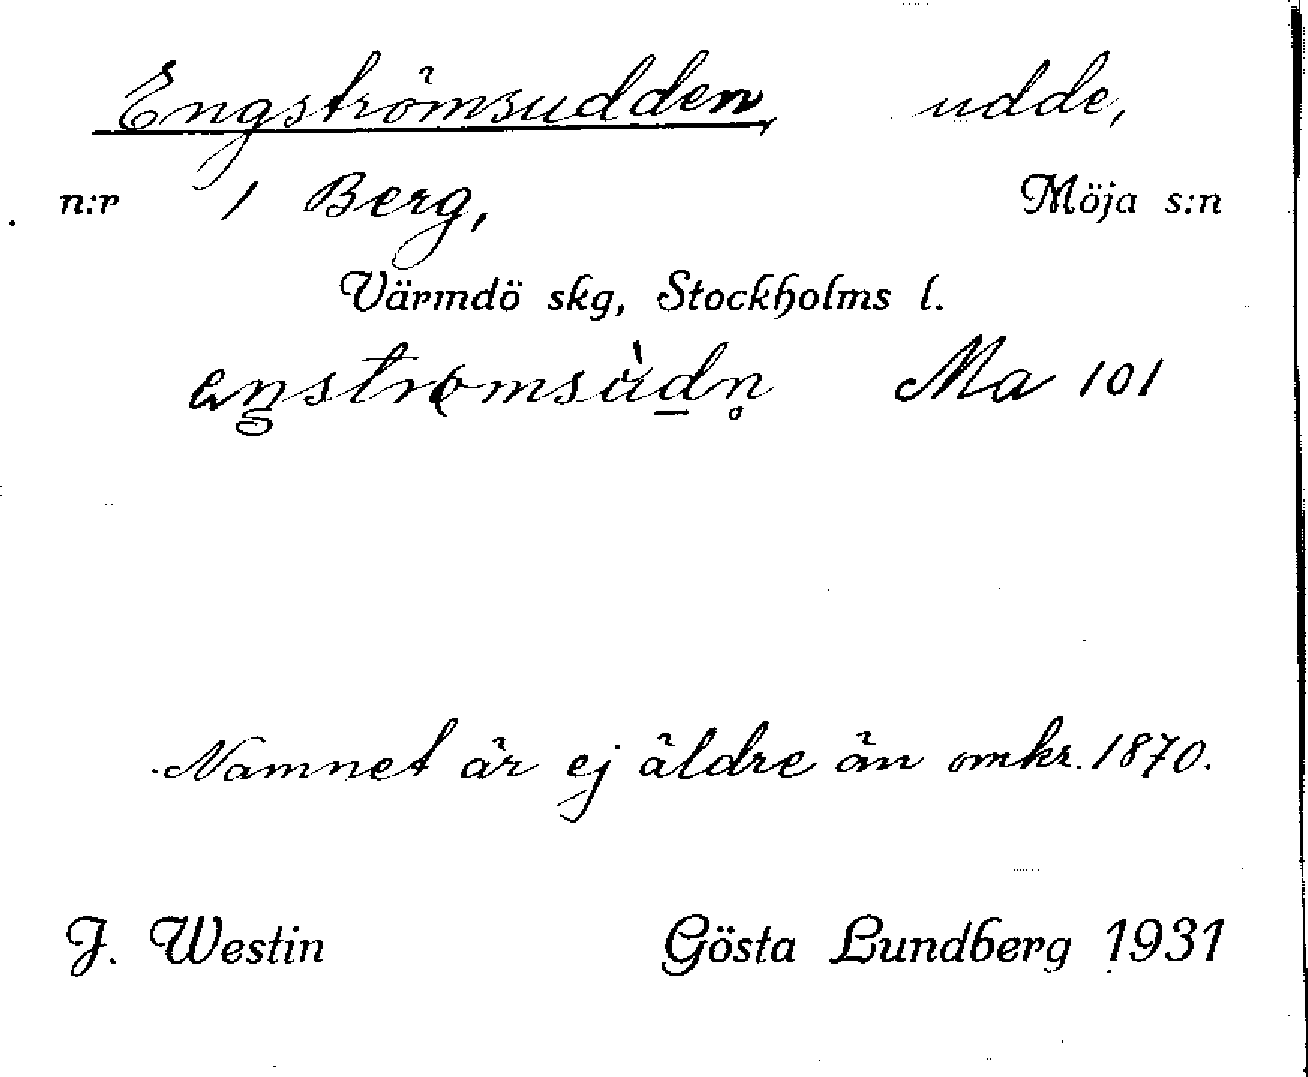 Engströmsudden, udde,
n:r 1 Berg, Möja s:n
Värmdö skg, Stockholms l.
Ma 101
Namnet är ej äldre än omkr. 1870.
J. Westin Gösta Lundberg 1931